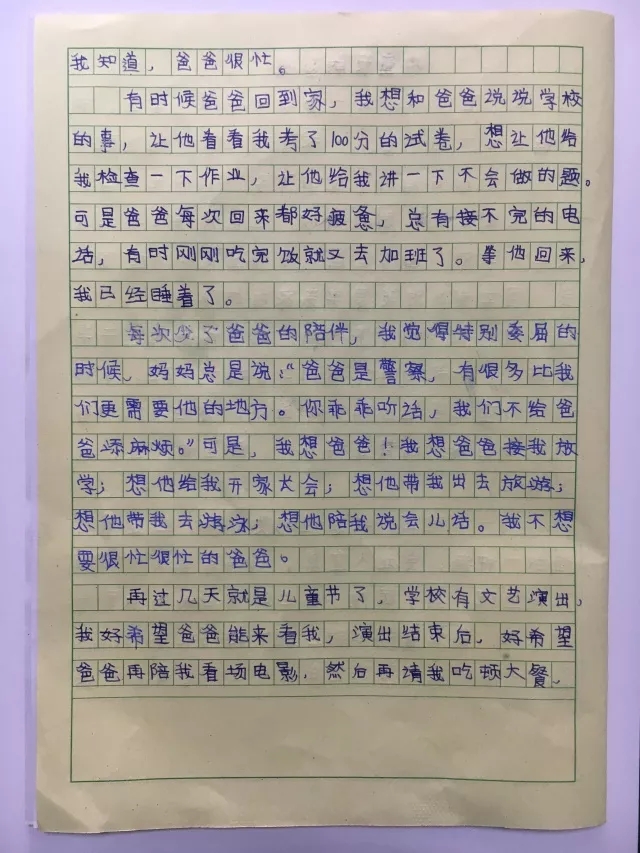 我知道，爸爸很忙。
有时候爸爸回到家，我想和爸爸说说学校
的事，让他看看我考了100分的试卷，想让他给
我检查一下作业，让他给我讲一下不会做的题。
可是爸爸每次回来都好疲惫，总有接不完的电
话，有时刚刚吃完饭就又去加班了。等他回来，
我已经睡着了。
每次少了爸爸的陪伴，我觉得特别委屈的
时候，妈妈总是说：“爸爸是警察，有很多比我
们更需要他的地方。你乖乖听话，我们不给爸
爸添麻烦。”可是，我想爸爸！我想爸爸接我放
学；想他给我开家长会；想他带我出去放游；
想他带我去游泳；想他陪我说会儿话。我不想
要很忙很忙的爸爸。
再过几天就是儿童节了，学校有文艺演出，
我好希望爸爸能来看我，演出结束后，好希望
爸爸再陪我看场电影，然后再请我吃顿大餐，